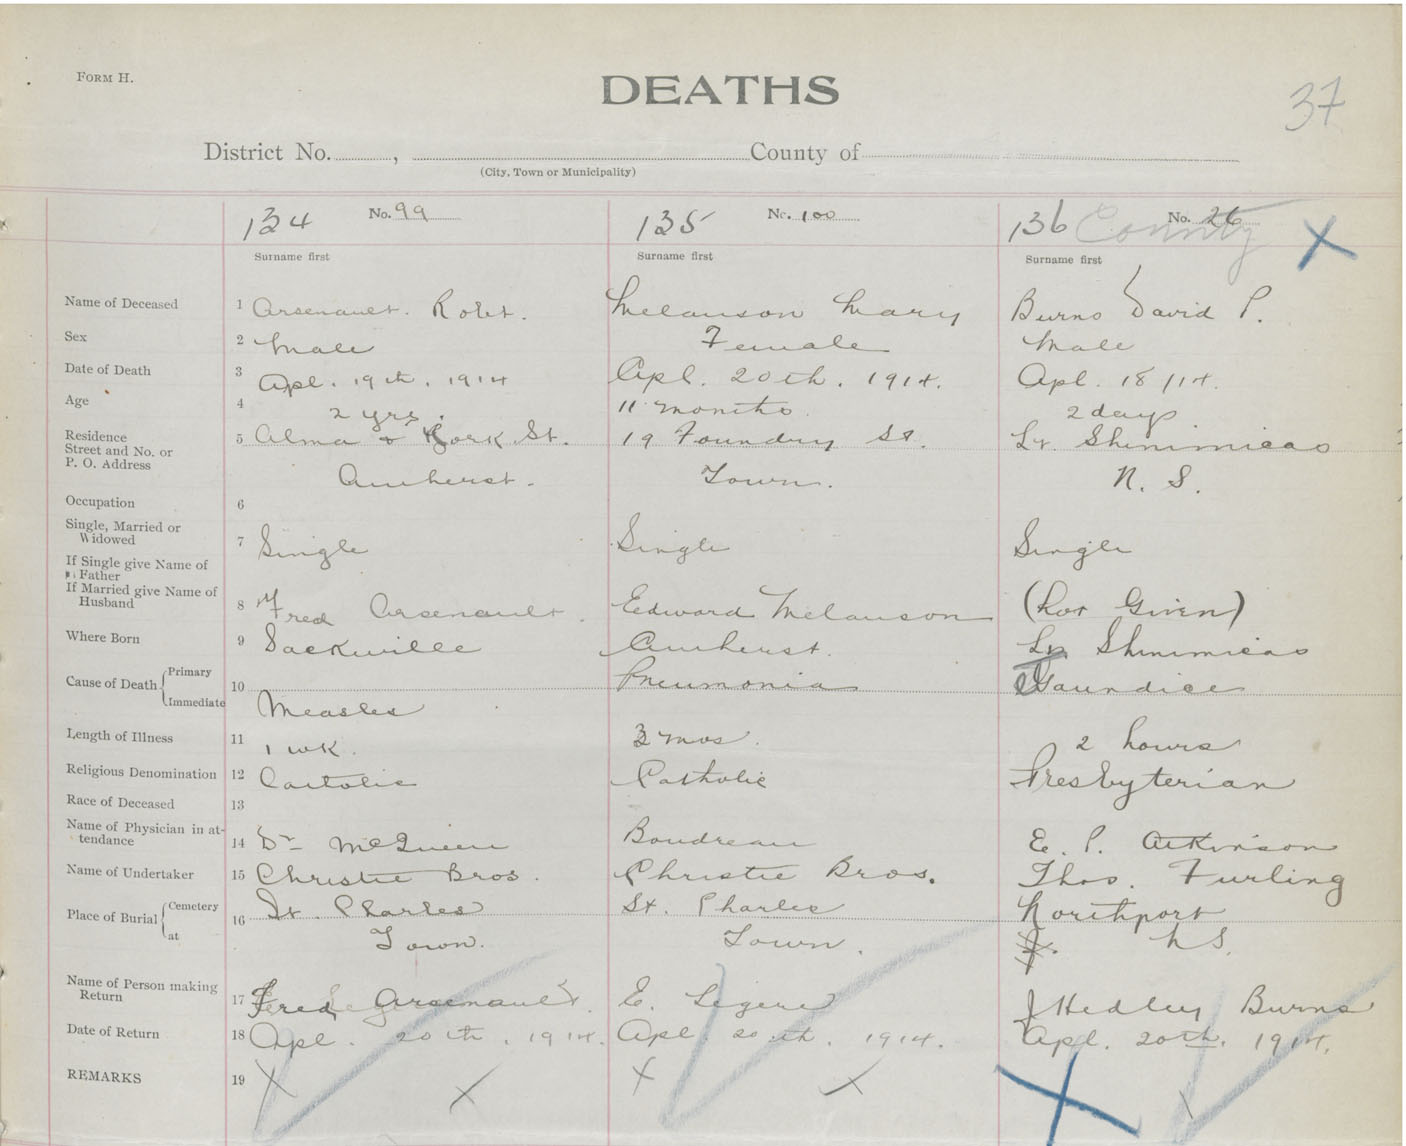 FORM H.
DEATHS
37
District No. , County of
(City, Town or Municipality)
134 No. 99 135 No. 100 136 County No. 26 X
Surname first Surname first Surname first
Name of Deceased 1 Arsenault. Robt. Melanson Mary Burns David P.
Sex 2 Male Female Male
Date of Death 3 Apl. 19th. 1914 Apl. 20th. 1914. Apl. 18/14.
Age 4 2 yrs. 11 months. 2 days
Residence
Street and No. or
P. O. Address
5 Alma & York St. 19 Foundry St. Lr. Shinimicas
Amherst. Town. N. S.
Occupation 6
Single, Married or
Widowed
7 Single Single Single
If Single give Name of
Father
If Married give Name of
Husband
8 Fred Arsenault. Edward Melanson (Not Given)
Where Born 9 Sackville Amherst. Lr Shinimicas
Cause of Death Primary 10 Pneumonia Jaundice
Immediate Measles
Length of Illness 11 1 wk. 3 mos. 2 hours
Religious Denomination 12 Catholic Catholic Presbyterian
Race of Deceased 13
Name of Physician in at-
tendance
14 Dr McQueen Boudreau E. P. Atkinson
Name of Undertaker 15 Christie Bros. Christie Bros. Thos. Furling
Place of Burial Cemetery 16 St. Charles St. Charles Northport
at Town. Town. N S.
Name of Person making
Return
17 Fred Arsenault. E. Legere J Hedley Burns
Date of Return 18 Apl. 20th. 1914. Apl. 20th. 1914. Apl. 20th. 1914.
REMARKS 19 X X X X X